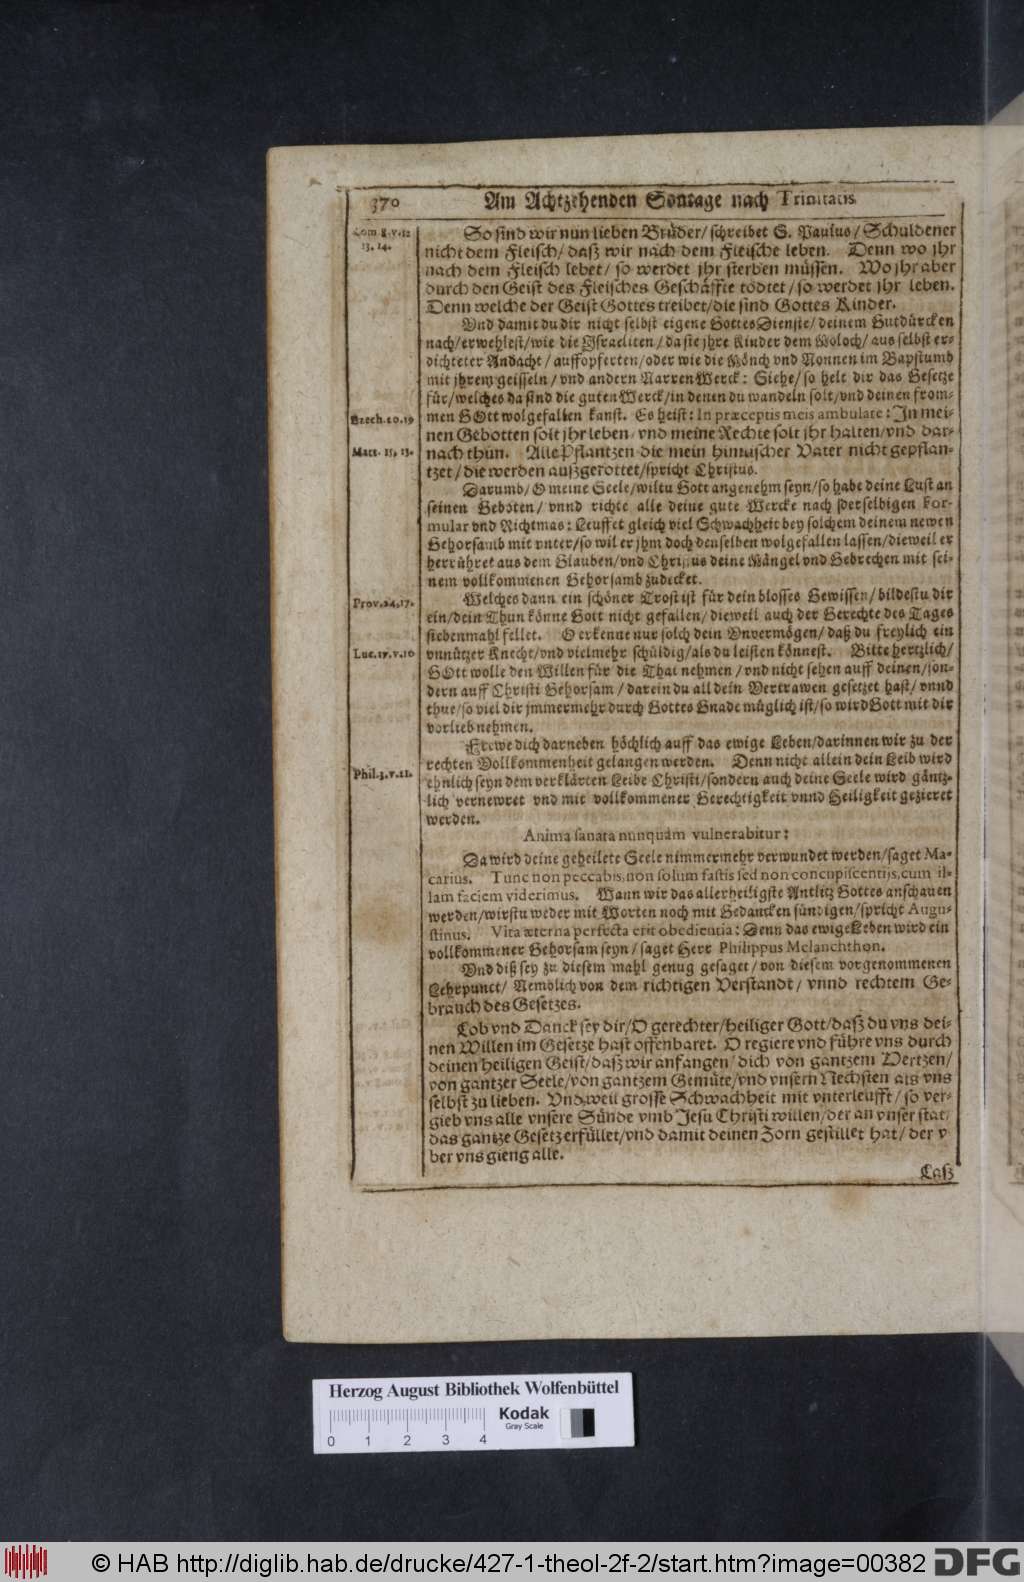 370 Am Achtzehenden Sontage nach Trinitatis
Rom. 8. v. 12
13. 14.
So sind wir nun lieben Brüder/ schreibet S. Paulus/ Schuldener
nicht dem Fleisch/ daß wir nach dem Fleische leben. Denn wo jhr
nach dem Fleisch lebet/ so werdet jhr sterben müssen. Wo jhr aber
durch den Geist des Fleisches Geschäffte tödtet/ so werdet jhr leben.
Denn welche der Geist Gottes treibet/ die sind Gottes Kinder.
Vnd damit du dir nicht selbst eigene GottesDienste/ deinem Gutdürcken
nach/ erwehlest/ wie die Israeliten/ da sie jhre Kinder dem Moloch/ aus selbst er-
dichteter Andacht/ auffopfferten/ oder wie die Mönch vnd Nonnen im Bapstumb
mit jhrem geisseln/ vnd andern NarrenWerck: Siehe/ so helt dir das Gesetze
für/ welches da sind die guten Werck/ in denen du wandeln solt/ vnd deinen from-
Ezech. 20. 19
men GOtt wolgefallen kanst. Es heist: In præceptis meis ambulate: In mei-
nen Gebotten solt jhr leben/ vnd meine Rechte solt jhr halten/ vnd dar-
Matt. 15. 13.
nach thun. Alle Pflantzen die mein himlischer Vater nicht gepflan-
tzet/ die werden außgerottet/ spricht Christus.
Darumb/ O meine Seele/ wiltu Gott angenehm seyn/ so habe deine Lust an
seinen Geboten/ vnnd richte alle deine gute Wercke nach derselbigen For-
mular vnd Richtmas: Leuffet gleich viel Schwachheit bey solchem deinem newen
Gehorsamb mit vnter/ so wil er jhm doch denselben wolgefallen lassen/ dieweil er
herrühret aus dem Glauben/ vnd Christus deine Mängel vnd Gebrechen mit sei-
nem vollkommenen Gehorsamb zudecket.
Prov. 24. 17.
Welches dann ein schöner Trost ist für dein blosses Gewissen/ bildestu dir
ein/ dein Thun könne Gott nicht gefallen/ dieweil auch der Gerechte des Tages
siebenmahl fellet. O erkenne nur solch dein Vnvermögen/ daß du freylich ein
Luc. 17. v. 10
vnnützer Knecht/ vnd vielmehr schüldig/ als du leisten könnest. Bitte hertzlich/
GOtt wolle den Willen für die That nehmen/ vnd nicht sehen auff deinen/ son-
dern auff Christi Gehorsam/ darein du all dein Vertrawen gesetzet hast/ vnnd
thue/ so viel dir jmmermehr durch Gottes Gnade müglich ist/ so wird Gott mit dir
vorlieb nehmen.
Frewe dich darneben höchlich auff das ewige Leben/ darinnen wir zu der
rechten Vollkommenheit gelangen werden. Denn nicht allein dein Leib wird
Phil. 3. v. 21.
ehnlich seyn dem verklärten Leibe Christi/ sondern auch deine Seele wird gäntz-
lich vernewret vnd mit vollkommener Gerechtigkeit vnnd Heiligkeit gezieret
werden.
Anima sanata nunquam vulnerabitur:
Da wird deine geheilete Seele nimmermehr verwundet werden/ saget Ma-
carius. Tunc non peccabis, non solum factis sed non concupiscentijs, cum il-
lam faciem viderimus. Wann wir das allerheiligste Antlitz Gottes anschauen
werden/ wirstu weder mit Worten noch mit Gedancken sündigen/ spricht Augu-
stinus. Vita æterna perfecta erit obedientia: Denn das ewige Leben wird ein
vollkommener Gehorsam seyn/ saget Herr Philippus Melanchthon.
Vnd diß sey zu diesem mahl genug gesaget/ von diesem vorgenommenen
Lehrpunct/ Nemblich von dem richtigen Verstandt/ vnnd rechtem Ge-
brauch des Gesetzes.
Lob vnd Danck sey dir/ O gerechter/ heiliger Gott/ daß du vns dei-
nen Willen im Gesetze hast offenbaret. O regiere vnd führe vns durch
deinen heiligen Geist/ daß wir anfangen/ dich von gantzem Hertzen/
von gantzer Seele/ von gantzem Gemüte/ vnd vnsern Nechsten als vns
selbst zu lieben. Vnd weil grosse Schwachheit mit vnterleufft/ so ver-
gieb vns alle vnsere Sünde vmb Jesu Christi willen/ der an vnser stat/
das gantze Gesetz erfüllet/ vnd damit deinen Zorn gestillet hat/ der v
ber vns gieng alle.
Laß
Herzog August Bibliothek Wolfenbüttel
Kodak
Gray Scale
0 1 2 3 4
© HAB http://diglib.hab.de/drucke/427-1-theol-2f-2/start.htm?image=00382 DFG